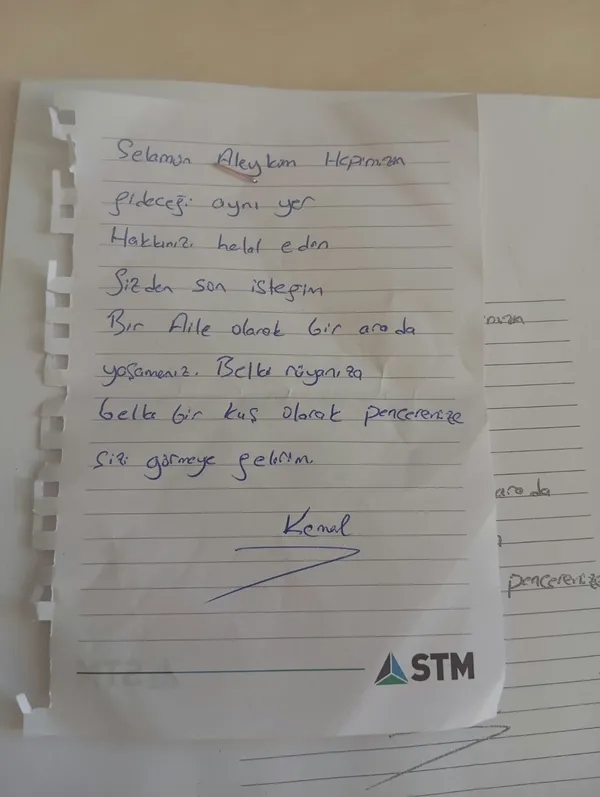 Selamün Aleyküm Hepimizin
gideceği aynı yer
Hakkınızı helal edin
Sizden son isteğim
Bir Aile olarak bir arada
yaşamanız. Belki rüyanıza
belki bir kuş olarak pencerenize
sizi görmeye gelirim.
Kemal
STM
arada
pencerenize